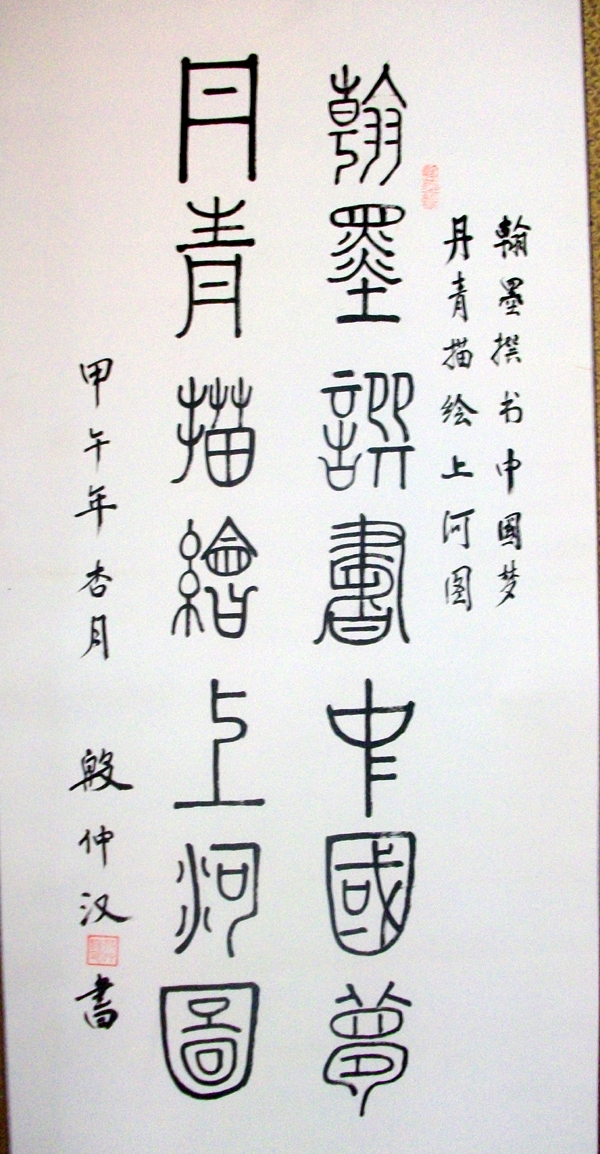 翰墨撰书中國梦
丹青描绘上河图
翰墨譔書中國夢
丹青描繪上河圖
甲午年杏月 殷仲汉書